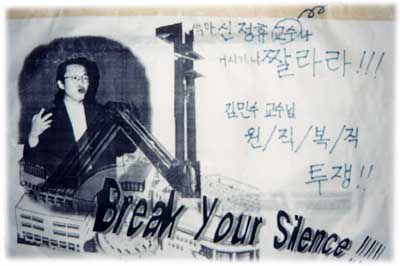 신정휴 교수나
거시기나 짤라라!!!
김민수 교수님
원/직/복/직
투쟁!!
Break Your Silence !!!!!